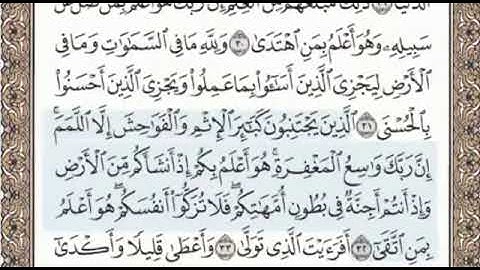 ٱلدُّنْيَا ٢٩ ذَٰلِكَ مَبْلَغُهُم مِّنَ ٱلْعِلْمِ إِنَّ رَبَّكَ هُوَ أَعْلَمُ بِمَن ضَلَّ عَن
سَبِيلِهِۦ وَهُوَ أَعْلَمُ بِمَنِ ٱهْتَدَىٰ ٣٠ وَلِلَّهِ مَا فِى ٱلسَّمَٰوَٰتِ وَمَا فِى
ٱلْأَرْضِ لِيَجْزِىَ ٱلَّذِينَ أَسَٰٓـُٔوا۟ بِمَا عَمِلُوا۟ وَيَجْزِىَ ٱلَّذِينَ أَحْسَنُوا۟
بِٱلْحُسْنَى ٣١ ٱلَّذِينَ يَجْتَنِبُونَ كَبَٰٓئِرَ ٱلْإِثْمِ وَٱلْفَوَٰحِشَ إِلَّا ٱللَّمَمَ ۚ
إِنَّ رَبَّكَ وَٰسِعُ ٱلْمَغْفِرَةِ ۚ هُوَ أَعْلَمُ بِكُمْ إِذْ أَنشَأَكُم مِّنَ ٱلْأَرْضِ
وَإِذْ أَنتُمْ أَجِنَّةٌ فِى بُطُونِ أُمَّهَٰتِكُمْ ۖ فَلَا تُزَكُّوٓا۟ أَنفُسَكُمْ ۖ هُوَ أَعْلَمُ
بِمَنِ ٱتَّقَىٰٓ ٣٢ أَفَرَءَيْتَ ٱلَّذِى تَوَلَّىٰ ٣٣ وَأَعْطَىٰ قَلِيلًا وَأَكْدَىٰٓ